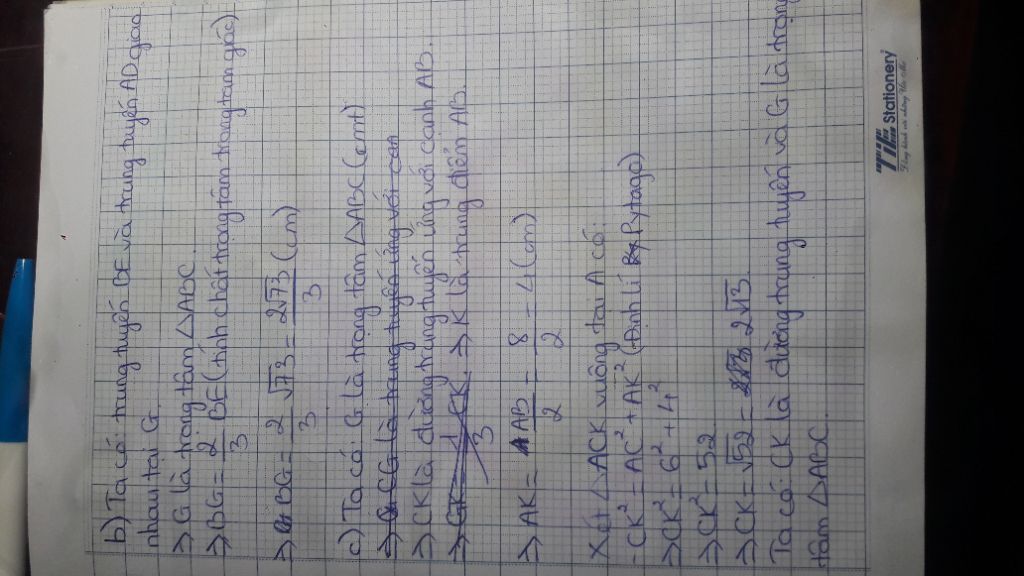 b) Ta có: trung tuyến BE và trung tuyến AD giao
nhau tại G.
⇒ G là trọng tâm △ABC.
⇒ BG = 2/3 BE (tính chất trọng tâm trong tam giác)
⇒ BG = 2/3 √73 = 2√73/3 (cm)
c) Ta có: G là trọng tâm △ABC (cmt)
⇒ CG là trung tuyến ứng với cạn
⇒ CK là đường trung tuyến ứng với cạnh AB.
⇒ GK = 1/3 CK. ⇒ K là trung điểm AB.
⇒ AK = AB/2 = 8/2 = 4 (cm)
Xét △ACK vuông tại A có:
- CK² = AC² + AK² (Định lí Pytago)
⇒ CK² = 6² + 4²
⇒ CK² = 52
⇒ CK = √52 = 2√13 2√13.
Ta có: CK là đường trung tuyến và G là trọng
tâm △ABC.
TiE Stationery